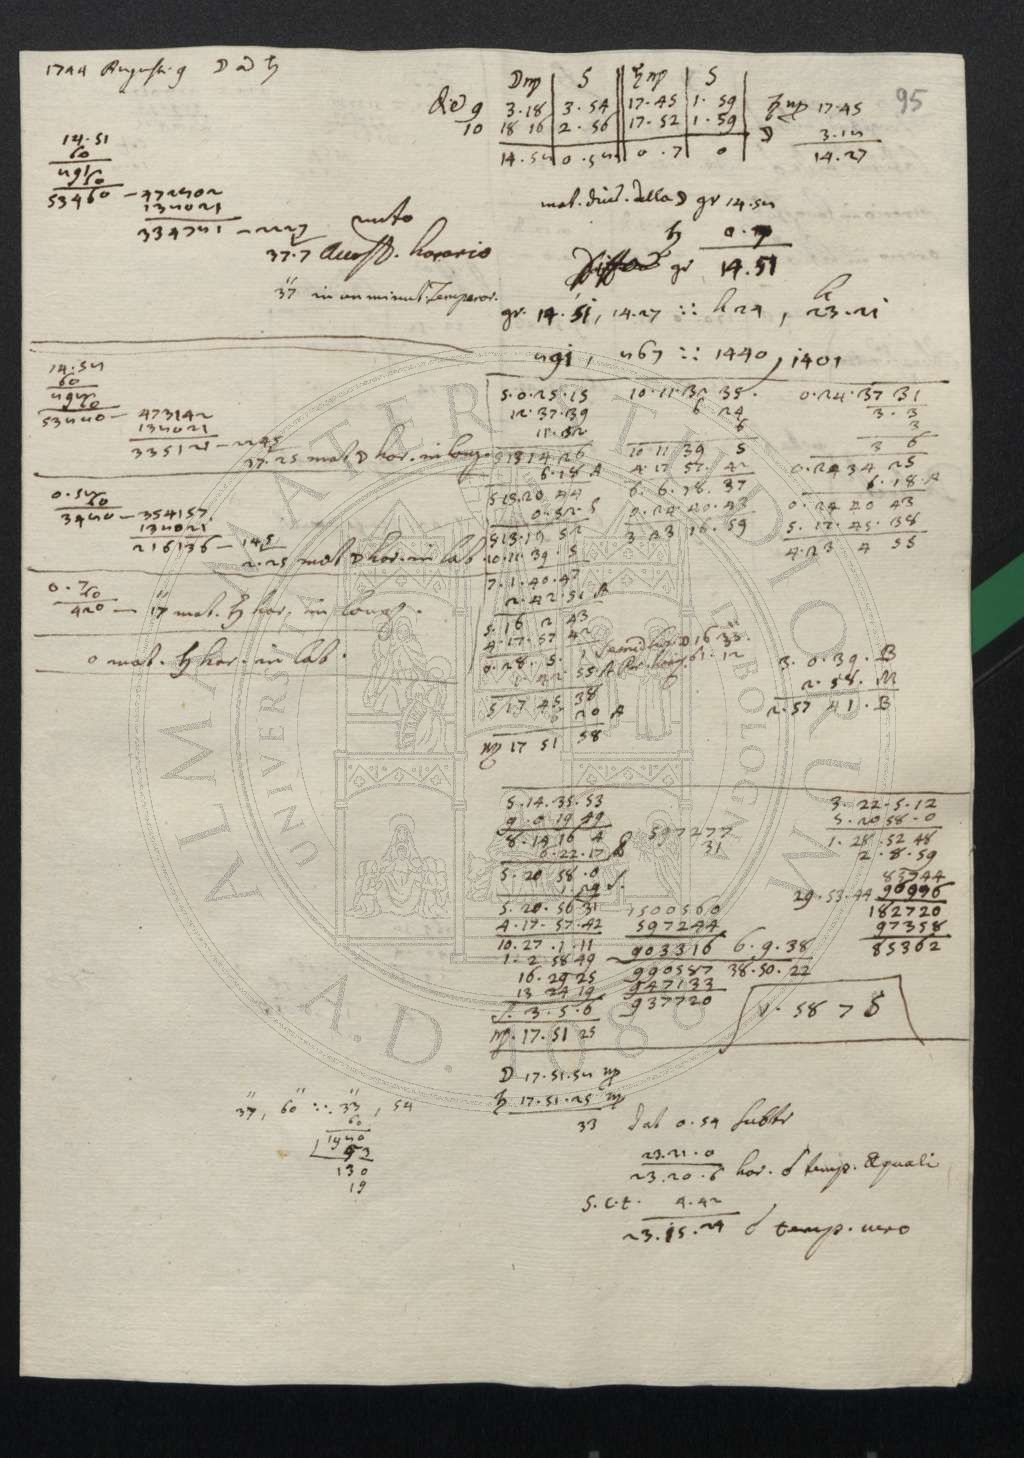 1744 August. 9 D ad ♄
95
D ♍ | S | ♄ ♍ | S
die 9 3.18 | 3.54 | 17.45 | 1.59
10 18 16 | 2.56 | 17.52 | 1.59
14.58 | 0.58 | 0.7 | 0
♄ ♍ 17.45
D 3.18
14.27
14.51
60
891
60
53460 — 472802
138021
334781 — 2227
37.7
horario
37 in un minut. Tempor.
mot. diur. della D gr 14.58
♄ 0.7
gr 14.51
gr. 14.51, 14.27 :: h 24, h 23.21
891, 867 :: 1440, 1401
14.58
60
898
60
53880 — 473142
138021
335121 — 2245
37.25 mot D hor. in long.
0.58
60
3480 — 354157
138021
216136 — 145
2.25 mot D hor. in lat.
0.7
60
420 — 17 mot. ♄ hor. in long.
0 mot. ♄ hor. in lat.
5.0.25.15
12.37.39
11.32
5 13 14 26
6.18 A
5 13.20 44
0.52 S
5 13.19 52
10.11.39.5
7.1.40.47
2.42.56 A
5.16 2 43
4.17.57 42
0.28.5.1
5 17 45 38
6 20 A
♍ 17 51 58
10.11.32 35
6 24
6
10 11 39 5
4.17 57.42
6.6.18.37
0.24.40.43
3 23 16.59
0.24.37 31
3.3
3
3 6
0.24 34 25
6.18.A
0.24 40 43
5.12.45.38
4.23 4 55
Semid. hor. D 16 33
3.0.39.B
2.58.M
2.57 41.B
5.14.35.53
9.0 19 49
8.14 16 4
6.22.17
5.20.58.0
1.29 S.
5.20.56 31
4.17.57.42
10.27.1.11
1.2 58 49
16.29 25
13 24 19
S. 3.5.6
♍. 17.51 25
597277
31
1500560
597244
903316 6.9.38
990587 38.50.22
947133
937720
3.22.5.12
5.20 58.0
1.28.52 48
2.8.59
85744
29.53.44 96996
182720
97358
85362
1.58 7 S
D 17.51.58 ♍
♄ 17.51.25 ♍
33 dat 0.54 subtr
23.21.0
23.20.6 hor. ☌ temp. Equali
S.C.t. 4.42
23.15.24 ☌ temp. vero
37, 60 :: 33, 54
60
1980
53
130
19
ALMA MATER STUDIORUM
UNIVERSITÀ DI BOLOGNA
A.D. 1088